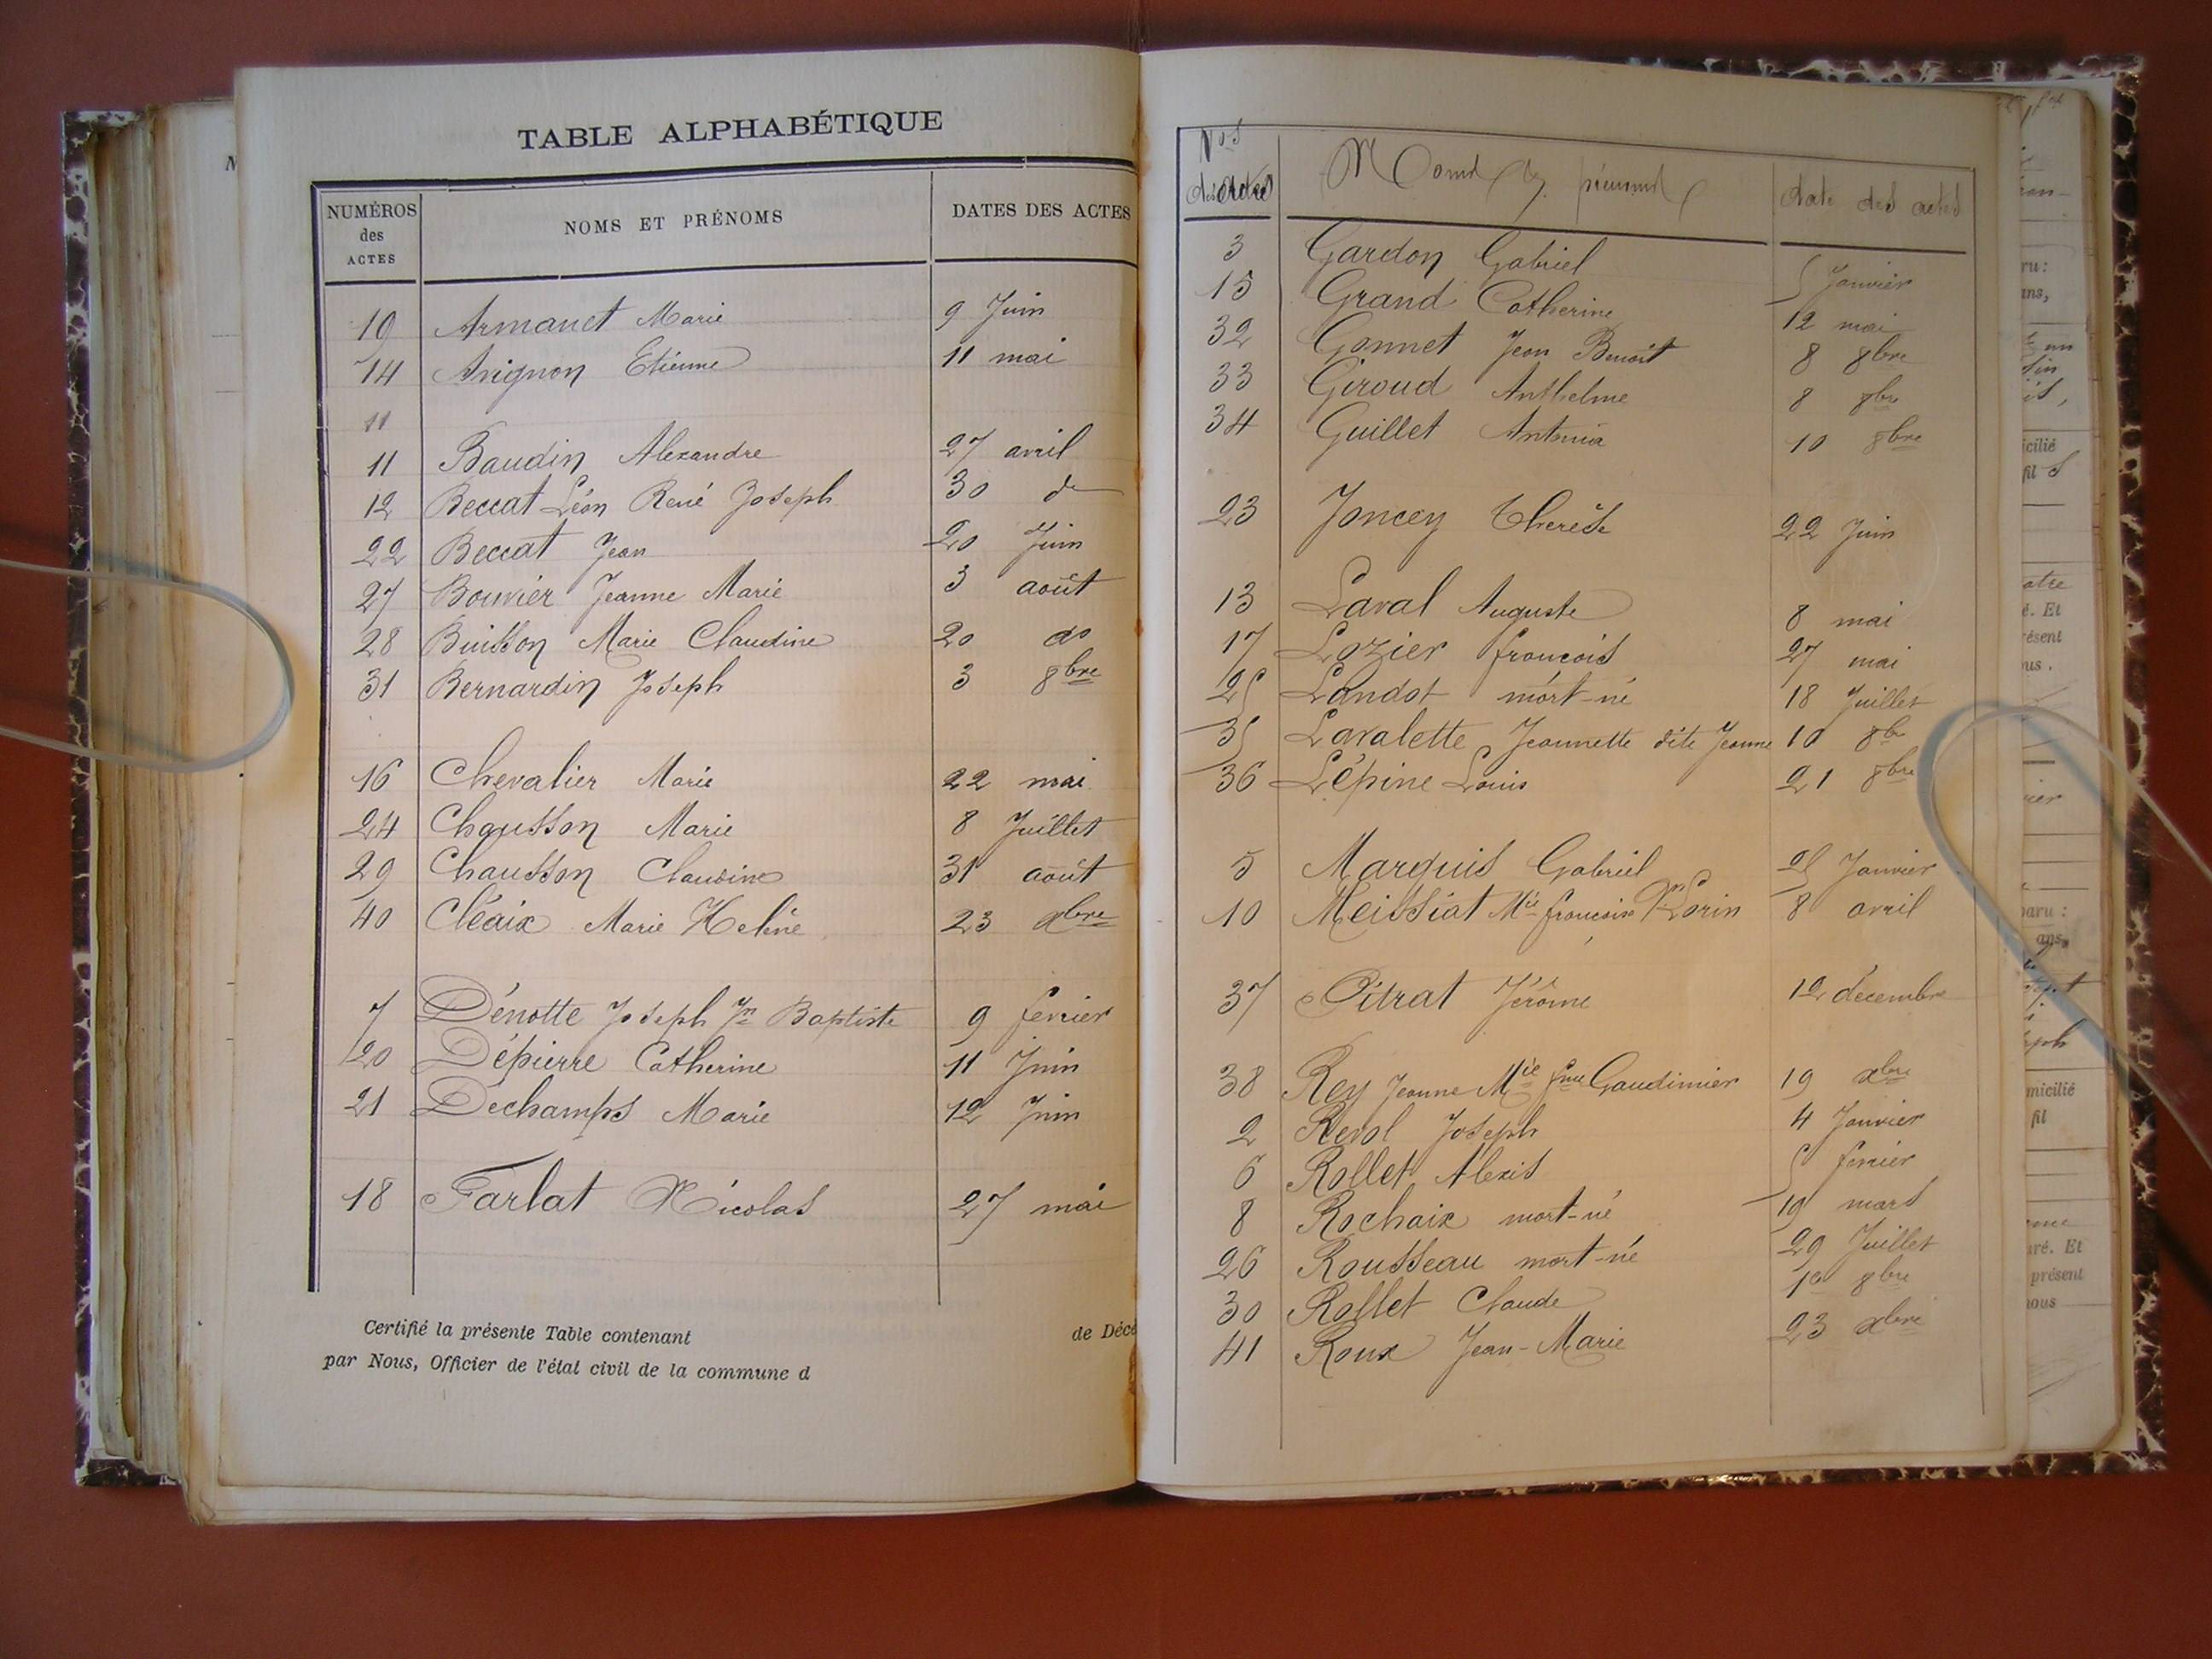 TABLE ALPHABÉTIQUE
NUMÉROS des ACTES NOMS ET PRÉNOMS DATES DES ACTES
19 Armanet Marie 9 Juin
14 Avignon Etienne 11 mai
11
11 Baudin Alexandre 27 avril
12 Beccat Léon René Joseph 30 do
22 Beccat Jean 20 Juin
27 Bouvier Jeanne Marie 3 août
28 Buisson Marie Claudine 20 do
31 Bernardin Joseph 3 8bre
16 Chevalier Marie 22 mai
24 Chausson Marie 8 Juillet
29 Chausson Claudine 31 août
40 Cléaix Marie Heléne 23 xbre
7 Dénotte Joseph Jn Baptiste 9 fevrier
20 Dépierre Catherine 11 Juin
21 Dechamps Marie 12 Juin
18 Farlat Nicolas 27 mai
Certifié la présente Table contenant de Décè
par Nous, Officier de l'état civil de la commune d
Nos des actes Noms et prénoms date des actes
3 Gardon Gabriel 5 Janvier
15 Grand Catherine 12 mai
32 Gonnet Jean Benoit 8 8bre
33 Giroud Anthelme 8 8bre
34 Guillet Antonia 10 8bre
23 Joncey Therèse 22 Juin
13 Laval Auguste 8 mai
17 Lozier francois 27 mai
25 Landot mort-né 18 Juillet
35 Lavalette Jeannette dite Jeanne 10 8b
36 Lépine Louis 21 8bre
5 Marquis Gabriel 25 Janvier
10 Meissiat Mie francoise Lorin 8 avril
37 Pitrat Jérôme 12 décembre
38 Rey Jeanne Mie fme Gaudimier 19 xbre
2 Revol Joseph 4 Janvier
6 Rollet Alexis 5 fevrier
8 Rochaix mort-né 19 mars
26 Rousseau mort-né 29 Juillet
30 Rollet Claude 1er 8bre
41 Roux Jean-Marie 23 xbre